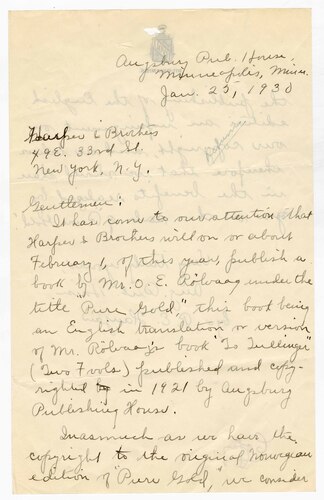 Augsburg Pub. House,
Minneapolis, Minn.
Jan. 25, 1930
Harper & Brothers
49 E. 33rd St.
New York, N.Y.
Gentlemen:
It has come to our attention that
Harper & Brothers will on or about
February 1, of this year, publish a
book by Mr. O. E. Rölvaag under the
title "Pure Gold," this book being
an English translation or version
of Mr. Rölvaag's book "To Tullinger"
(Two Fools) published and copy-
righted in 1921 by Augsburg
Publishing House.
Inasmuch as we have the
copyright to the original Norwegian
edition of "Pure Gold," we consider